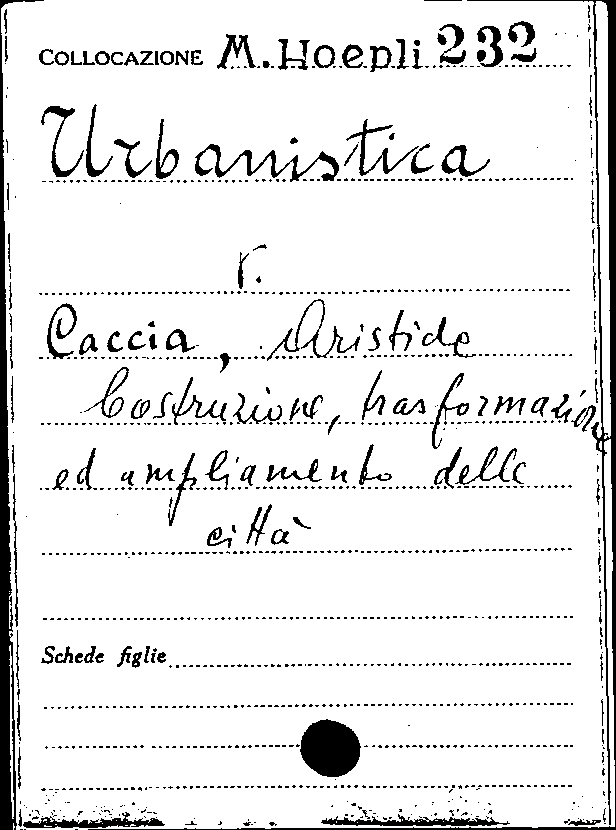 COLLOCAZIONE M. Hoepli 232
Urbanistica
r.
Caccia, Aristide
Costruzione, trasformazione
ed ampliamento delle
città
Schede figlie